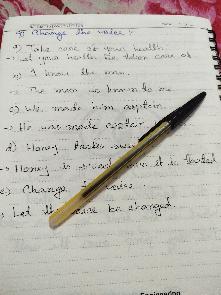 Change the voice :
a) Take care of your health.
→ Let your health be taken care of
b) I know the man.
→ The man is known to me.
c) We made him captain
→ He was made captain
d) Honey tastes
→ Honey is sweet when it is tasted
e) Change voice.
→ Let the voice be changed.
Engineering